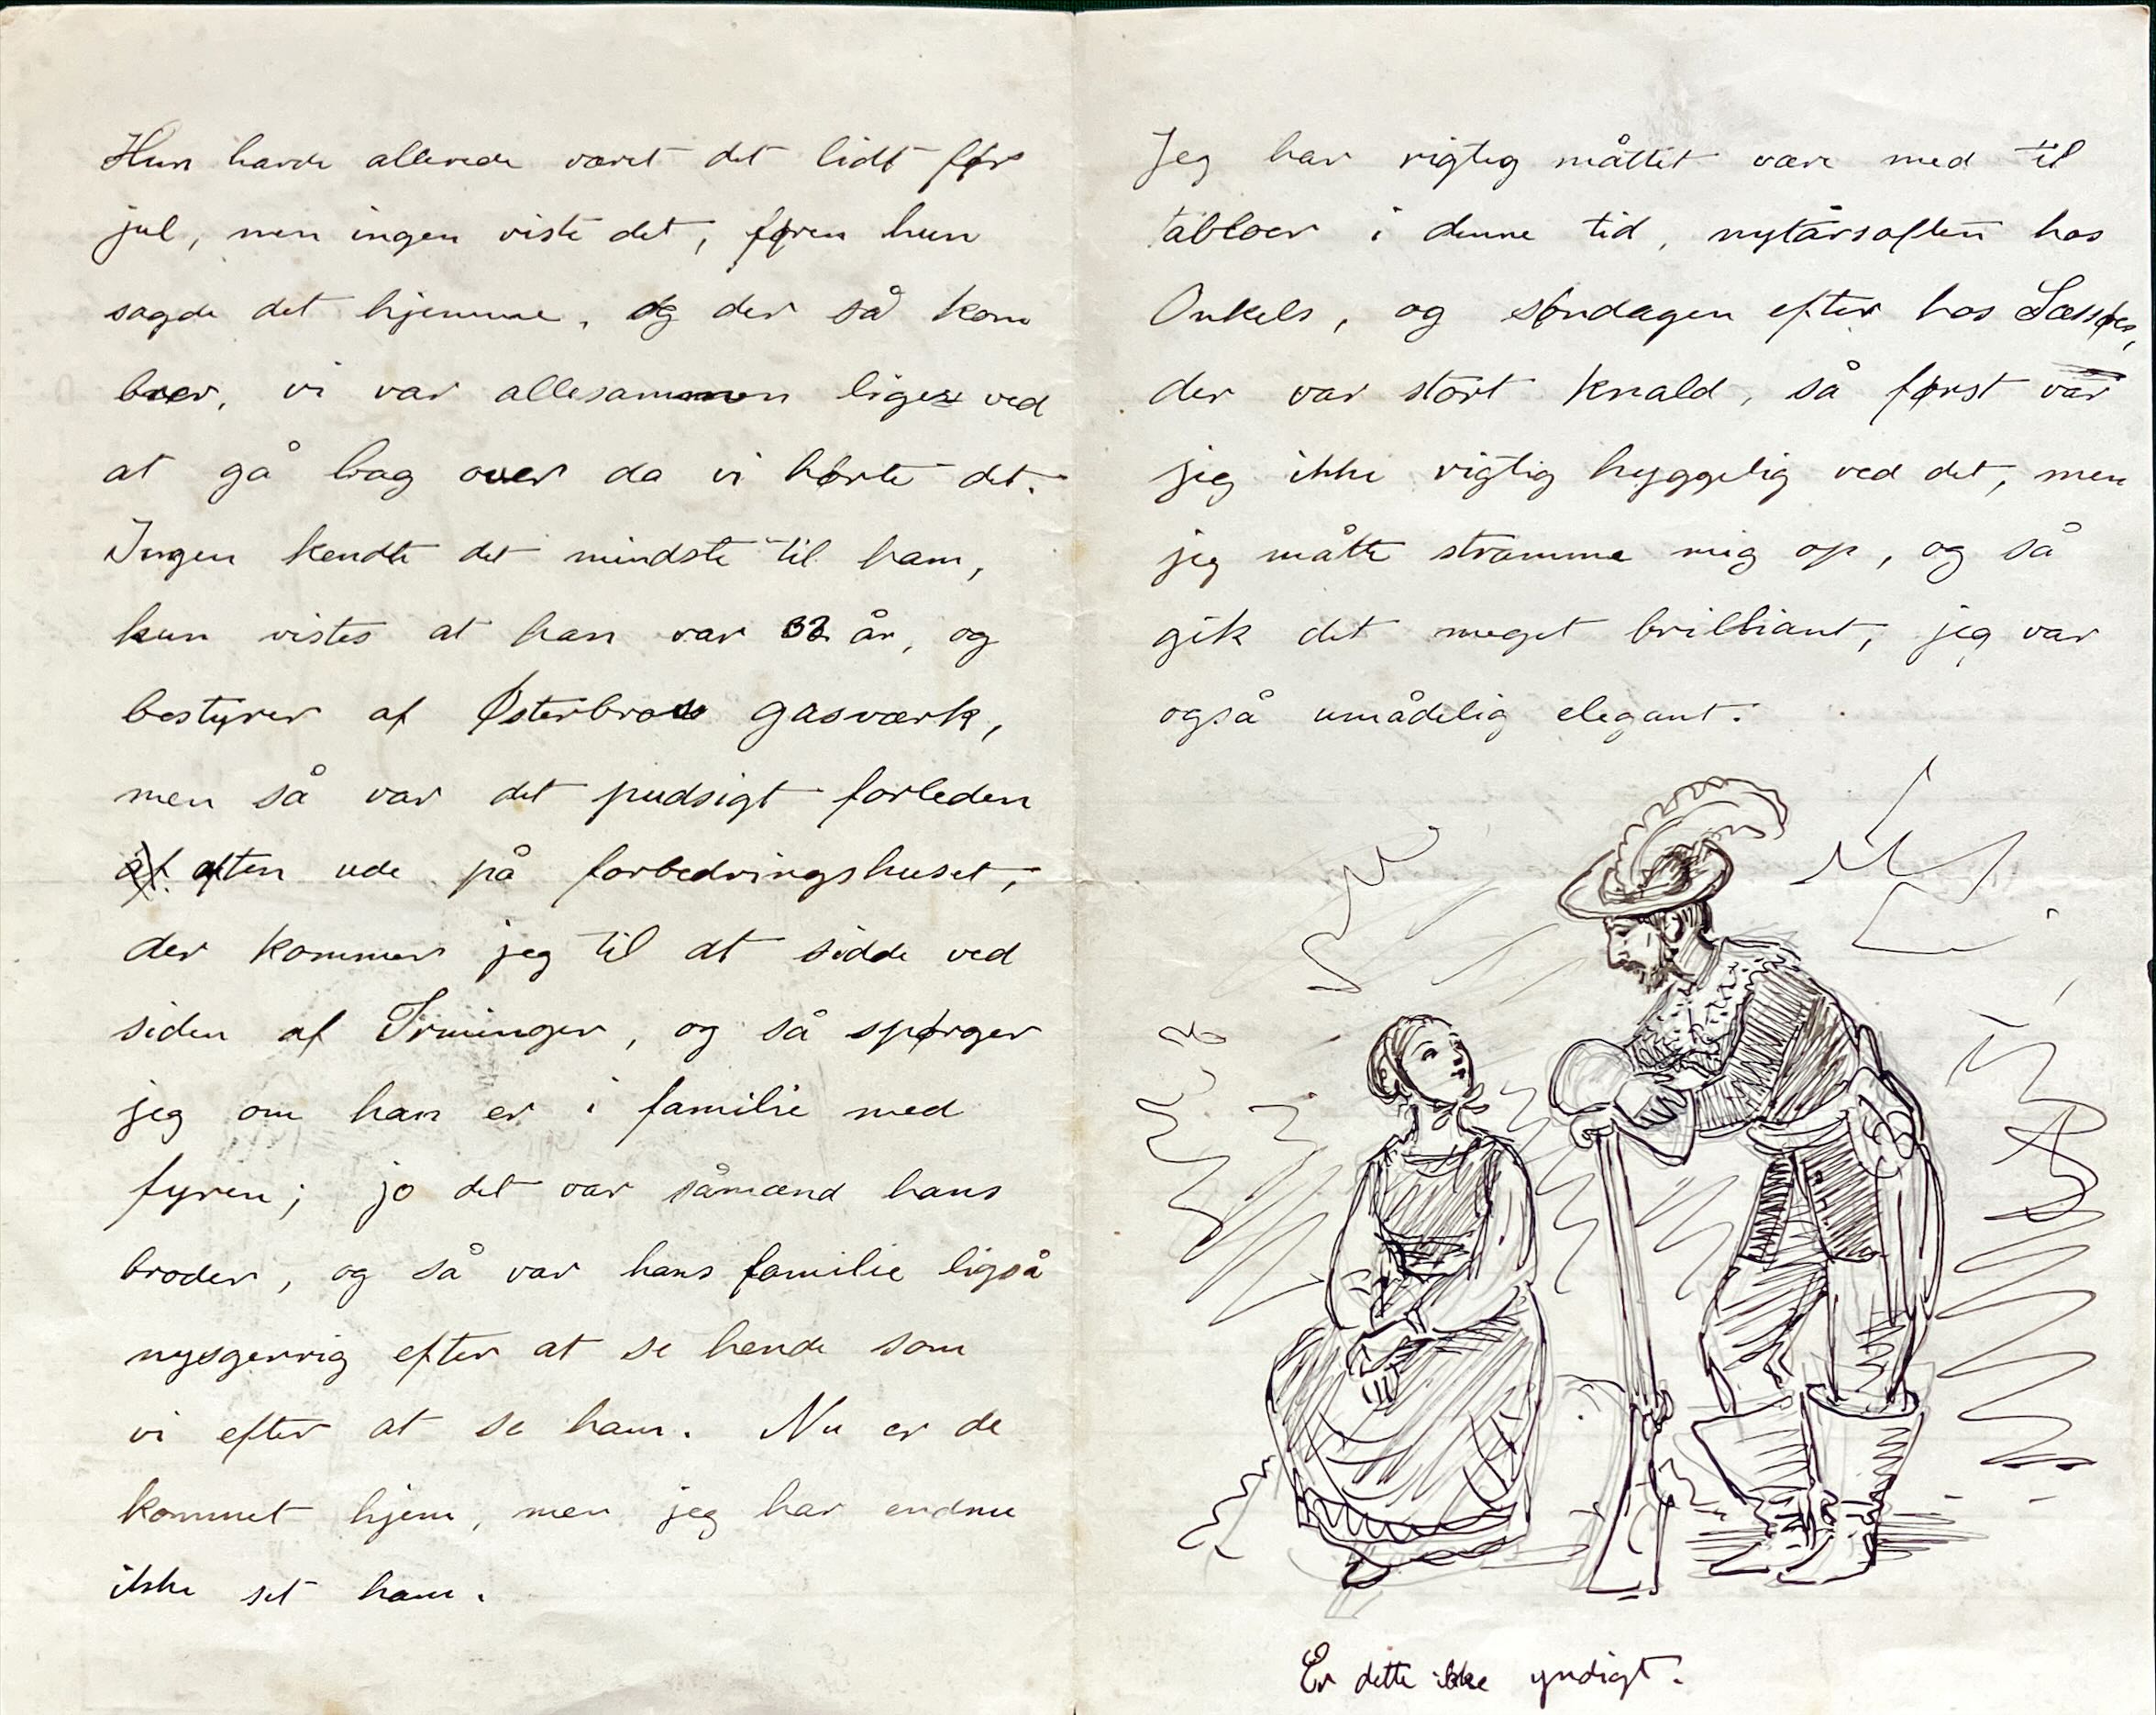 Hun havde allerede været det lidt før
jul, men ingen viste det, føren hun
sagde det hjemme, og der så kom
brev, vi var allesammen lige ved
at gå bag over da vi hørte det.
Ingen kendte det mindste til ham,
kun vistes at han var 32 år, og
bestyrer af Østerbros gasværk,
men så var det pudsigt forleden
aften ude på forbedringshuset,
der kommer jeg til at sidde ved
siden af Irminger, og så spørger
jeg om han er i familie med
fyren; jo det var såmænd hans
broder, og så var hans familie ligså
nysgerrig efter at se hende som
vi efter at se ham. Nu er de
kommet hjem, men jeg har endnu
ikke set ham.
Jeg har rigtig måttet være med til
tabloer i denne tid, nytårsaften hos
Onkels, og søndagen efter hos Læssøes,
der var stort knald, så først var
jeg ikke rigtig hyggelig ved det, men
jeg måtte stramme mig op, og så
gik det meget brilliant, jeg var
også umådelig elegant.
Er dette ikke yndigt.